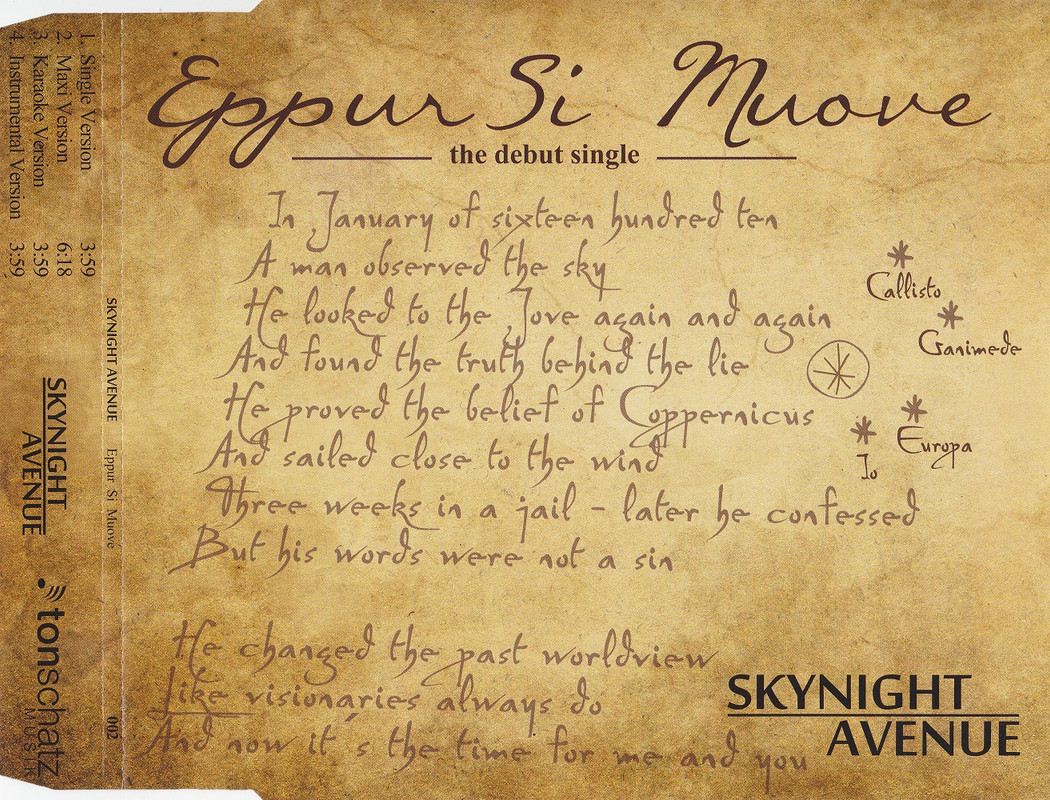 Eppur Si Muove
the debut single
In January of sixteen hundred ten
A man observed the sky
He looked to the Jove again and again
And found the truth behind the lie
He proved the belief of Coppernicus
And sailed close to the wind
Three weeks in a jail - later he confessed
But his words were not a sin
He changed the past worldview
Like visionaries always do
And now it´s the time for me and you
Callisto
Ganimede
Europa
Io
SKYNIGHT
AVENUE
1. Single Version 3:59
2. Maxi Version 6:18
3. Karaoke Version 3:59
4. Instrumental Version 3:59
SKYNIGHT
AVENUE
tonschatz
MUSIK
SKYNIGHT AVENUE Eppur Si Muove 002